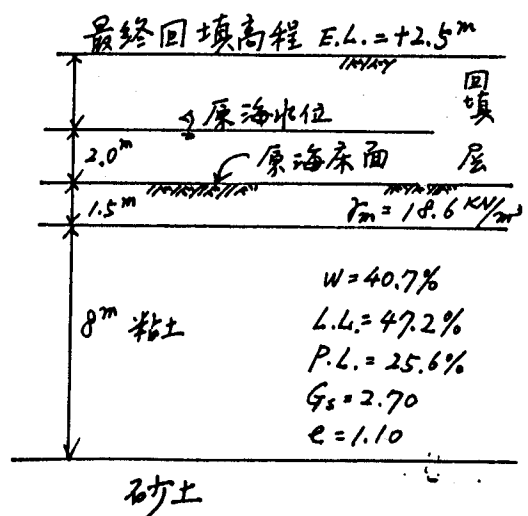 最终回填高程 E.L.=+2.5m
回填层
原海水位
2.0m
原海床面
1.5m
γm=18.6 KN/m³
W=40.7%
L.L.=47.2%
8m 粘土
P.L.=25.6%
Gs=2.70
e=1.10
砂土